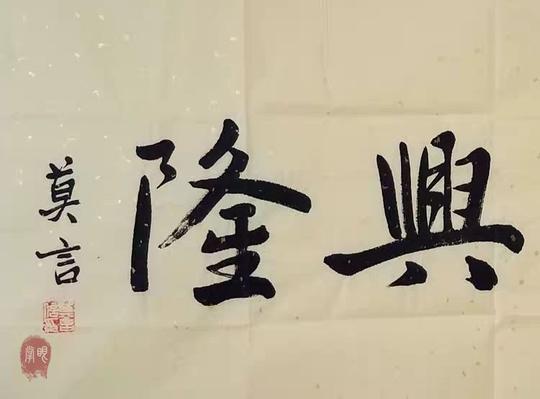 興隆
莫言